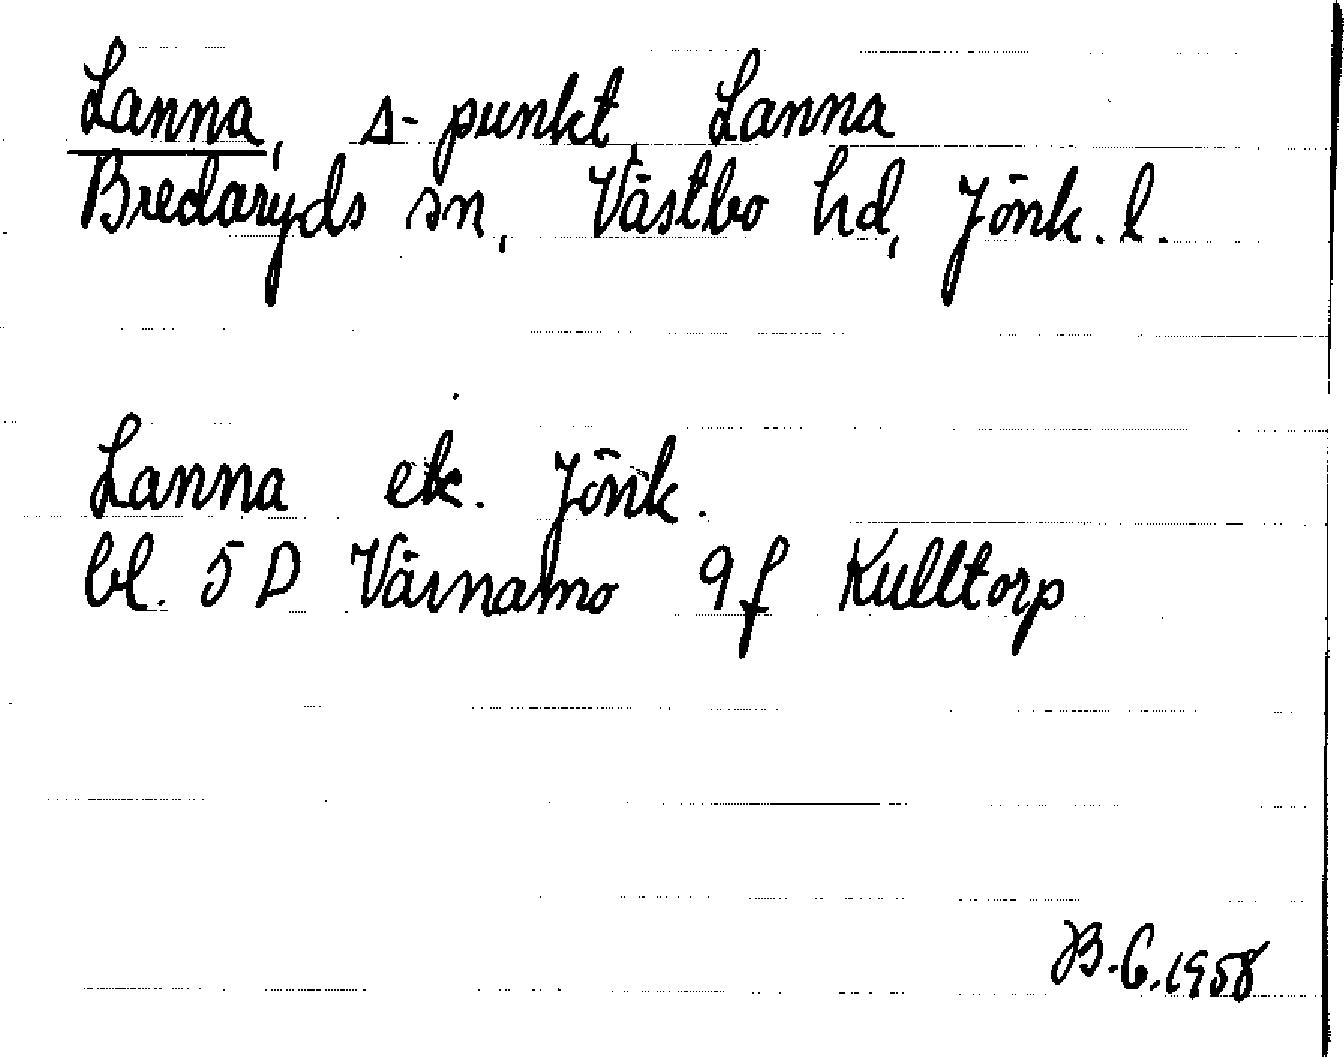 Lanna, s-punkt, Lanna
Bredaryds sn, Västbo hd, Jönk. l.
Lanna ek. Jönk.
bl. 5 D Värnamo 9 f Kulltorp
B. C. 1958